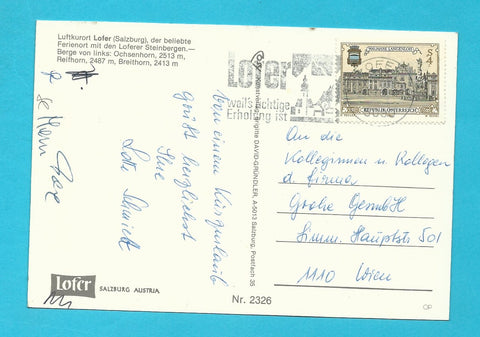 Luftkurort Lofer (Salzburg), der beliebte
Ferienort mit den Loferer Steinbergen.—
Berge von links: Ochsenhorn, 2513 m,
Reifhorn, 2487 m, Breithorn, 2413 m
Lofer
weil's richtige
Erholung ist
S 4
REPUBLIK ÖSTERREICH
Von einem Kurzurlaub
grüßt herzlichst
Ihre
Lotte Schmidt
DAVID-GRÜNDLER, A-5013 Salzburg, Postfach 35
An die
Kolleginnen u. Kollegen
d. Firma
Grohe GesmbH
Simm. Hauptstr 501
1110 Wien
Lofer
SALZBURG AUSTRIA
Nr. 2326